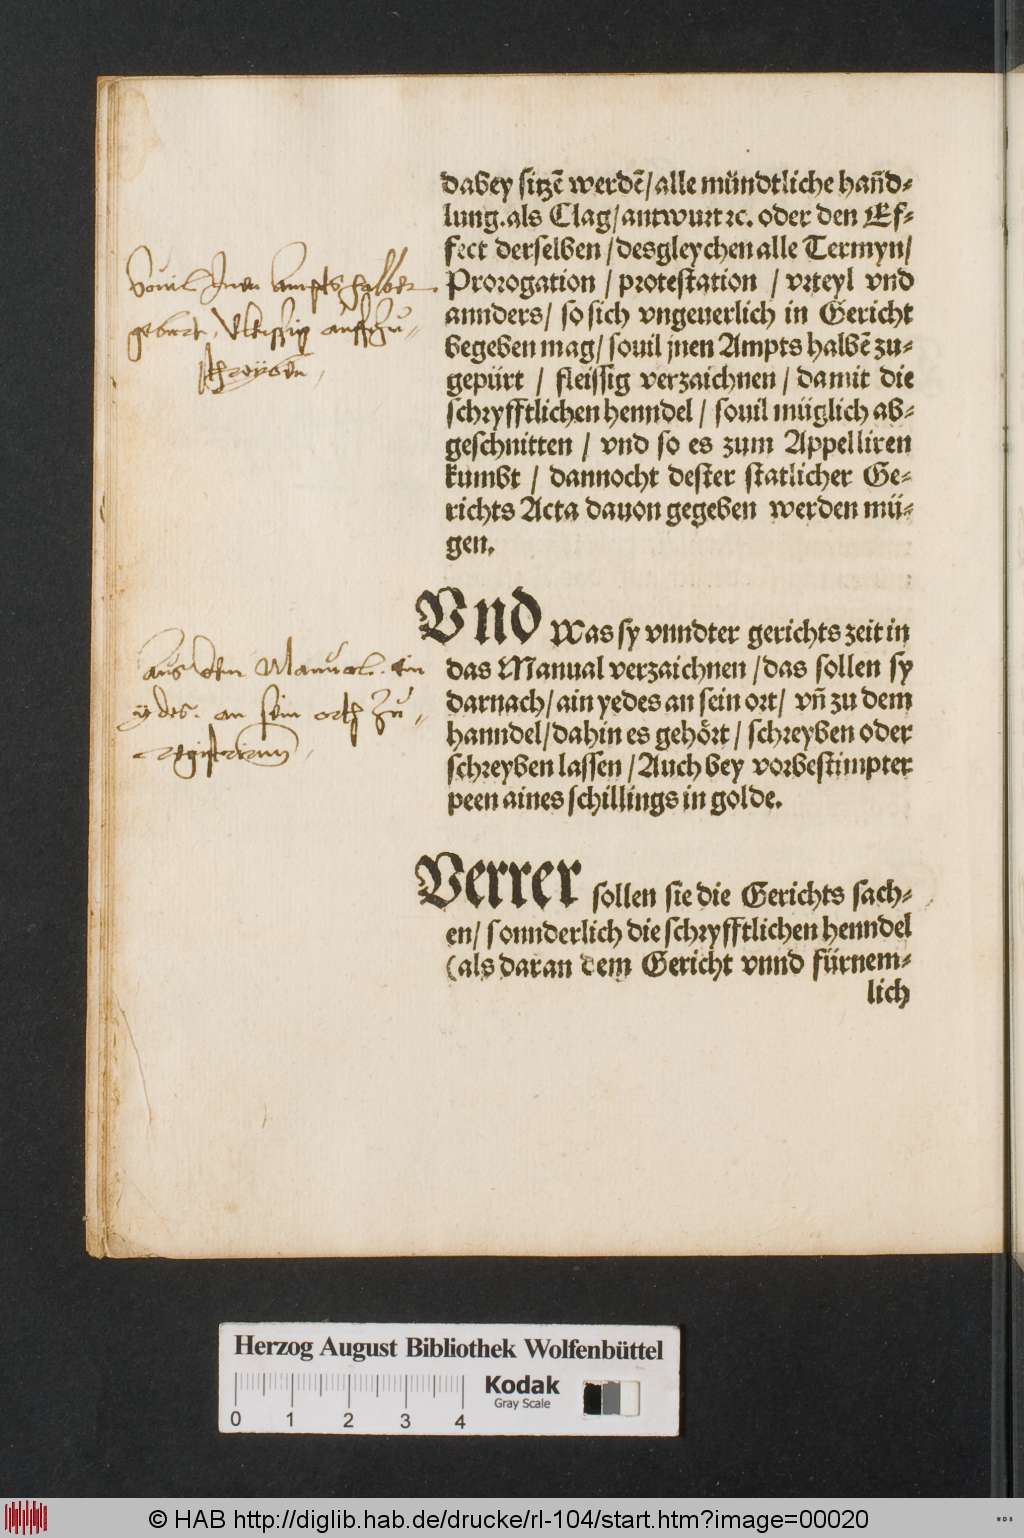 dabey sitzē werdē/ alle mündtliche han̄d-
lung. als Clag/ antwurt ꝛc. oder den Ef-
fect derselben / desgleychen alle Termyn/
Prorogation / protestation / vrteyl vnd
annders/ so sich vngeuerlich in Gericht
begeben mag/ souil jnen Ampts halbē zu-
gepürt / fleissig verzaichnen / damit die
schryfftlichen henndel / souil müglich ab-
geschnitten / vnd so es zum Appelliren
kumbt / dannocht dester statlicher Ge-
richts Acta dauon gegeben werden mü-
gen.
souil Inen ampts halber
geburt, vleissig auffzu-
schreyben,
Vnd Was sy vnndter gerichts zeit in
das Manual verzaichnen / das sollen sy
darnach/ ain yedes an sein ort/ vn̄ zu dem
hanndel/ dahin es gehört/ schreyben oder
schreyben lassen / Auch bey vorbestimpter
peen aines schillings in golde.
aus dem Manual. ein
ydes. an sein orth zu-
registrirnn,
Verrer sollen sie die Gerichts sach-
en/ sonnderlich die schryfftlichen henndel
(als daran dem Gericht vnnd fürnem-
lich
Herzog August Bibliothek Wolfenbüttel
0 1 2 3 4
Kodak
Gray Scale
© HAB http://diglib.hab.de/drucke/rl-104/start.htm?image=00020